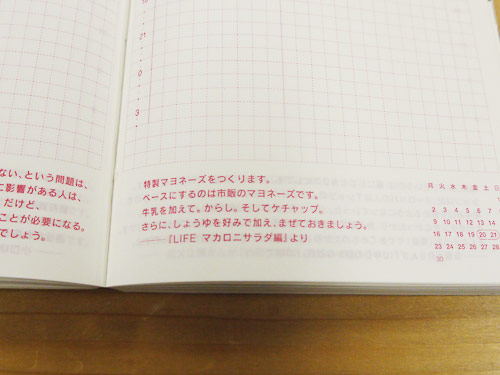 21
0
3
ない、という問題は、
に影響がある人は、
だけど、
ことが必要になる。
でしょう。
特製マヨネーズをつくります。
ベースにするのは市販のマヨネーズです。
牛乳を加えて。からし。そしてケチャップ。
さらに、しょうゆを好みで加え、まぜておきましょう。
──『LIFE マカロニサラダ編』より
月 火 水 木 金 土 日
1
2 3 4 5 6 7 8
9 10 11 12 13 14 15
16 17 18 19 20 21
23 24 25 26 27 28
30